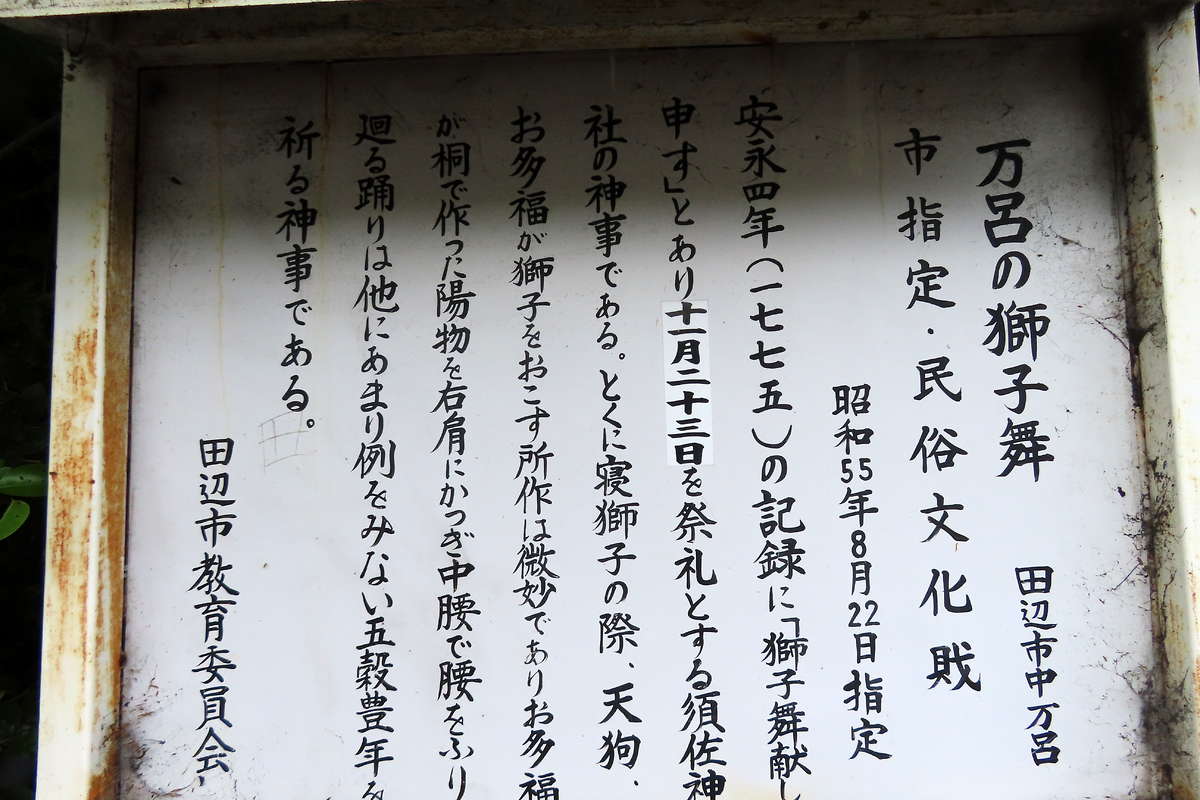 万呂の獅子舞　田辺市中万呂
市指定・民俗文化財
昭和55年8月22日指定
安永四年（一七七五）の記録に「獅子舞献し
申す」とあり十一月二十三日を祭礼とする須佐神
社の神事である。とくに寝獅子の際、天狗、
お多福が獅子をおこす所作は微妙でありお多福
が桐で作った陽物を右肩にかつぎ中腰で腰をふり
廻る踊りは他にあまり例をみない五穀豊年を
祈る神事である。
田辺市教育委員会